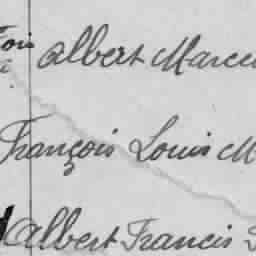 Albert Marcel
François Louis M
Albert Francis